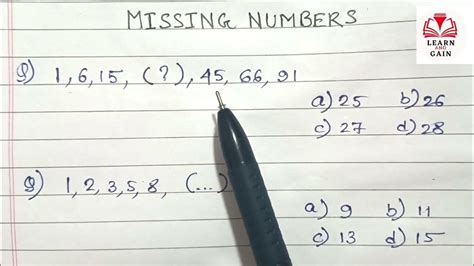 MISSING NUMBERS
LEARN
AND
GAIN
Q) 1, 6, 15, (?), 45, 66, 91
a) 25 b) 26
c) 27 d) 28
Q) 1, 2, 3, 5, 8, (...)
a) 9 b) 11
c) 13 d) 15